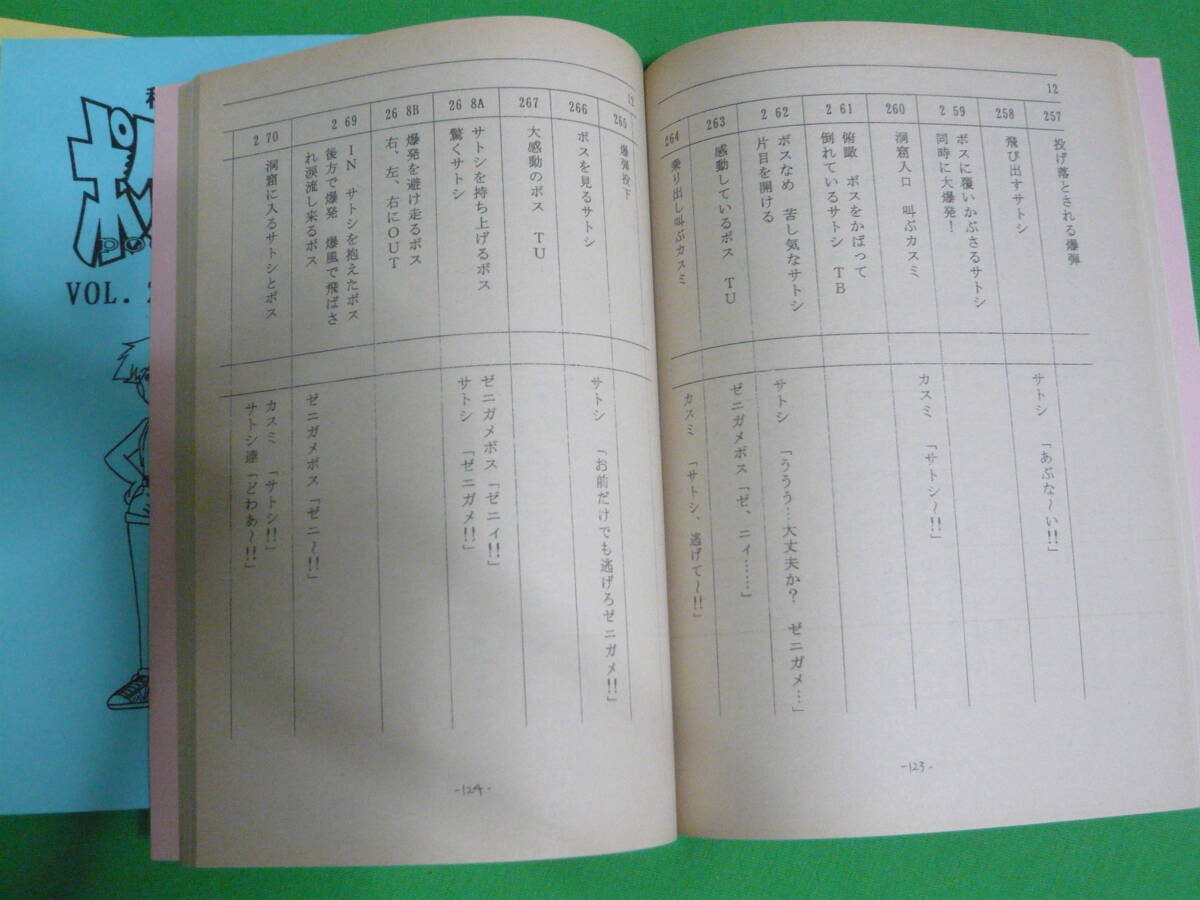 12
257
投げ落とされる爆弾
サトシ 「あぶな~い!!」
258
飛び出すサトシ
2 59
ボスに覆いかぶさるサトシ
同時に大爆発!
260
洞窟入口 叫ぶカスミ
カスミ 「サトシ~!!」
2 61
俯瞰 ボスをかばって
倒れているサトシ TB
2 62
ボスなめ 苦し気なサトシ
片目を開ける
サトシ 「ううう…大丈夫か? ゼニガメ…」
263
感動しているボス TU
ゼニガメボス「ゼ、ニィ……」
264
乗り出し叫ぶカスミ
カスミ 「サトシ、逃げて~!!」
-123-
12
265
爆弾投下
266
ボスを見るサトシ
サトシ 「お前だけでも逃げろゼニガメ!!」
267
大感動のボス TU
26 8A
サトシを持ち上げるボス
驚くサトシ
ゼニガメボス「ゼニィ!!」
サトシ 「ゼニガメ!!」
26 8B
爆発を避け走るボス
右、左、右にOUT
2 69
IN サトシを抱えたボス
後方で爆発 爆風で飛ばさ
れ涙流し来るボス
ゼニガメボス「ゼニ~!!」
2 70
洞窟に入るサトシとボス
カスミ 「サトシ!!」
サトシ達「どわあ~!!」
-124-
VOL. 2